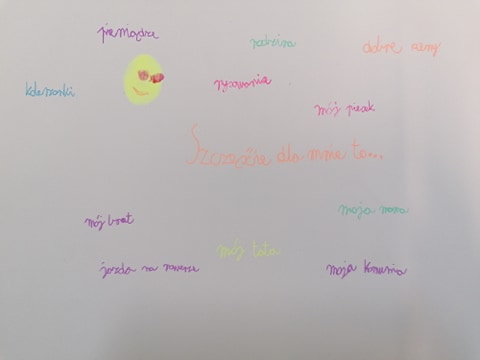 pieniądze
rodzina
dobre oceny
koleżanki
rysowanie
mój piesek
Szczęście dla mnie to...
mój brat
moja mama
mój tata
jazda na rowerze
moja Komunia